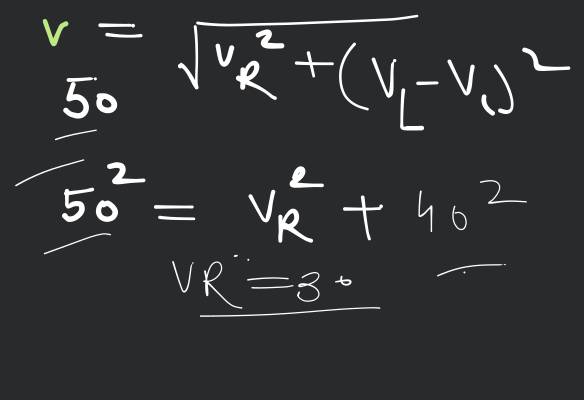 v = √(v_R² + (V_L - V_c)²)
50
50² = V_R² + 40²
VR = 30